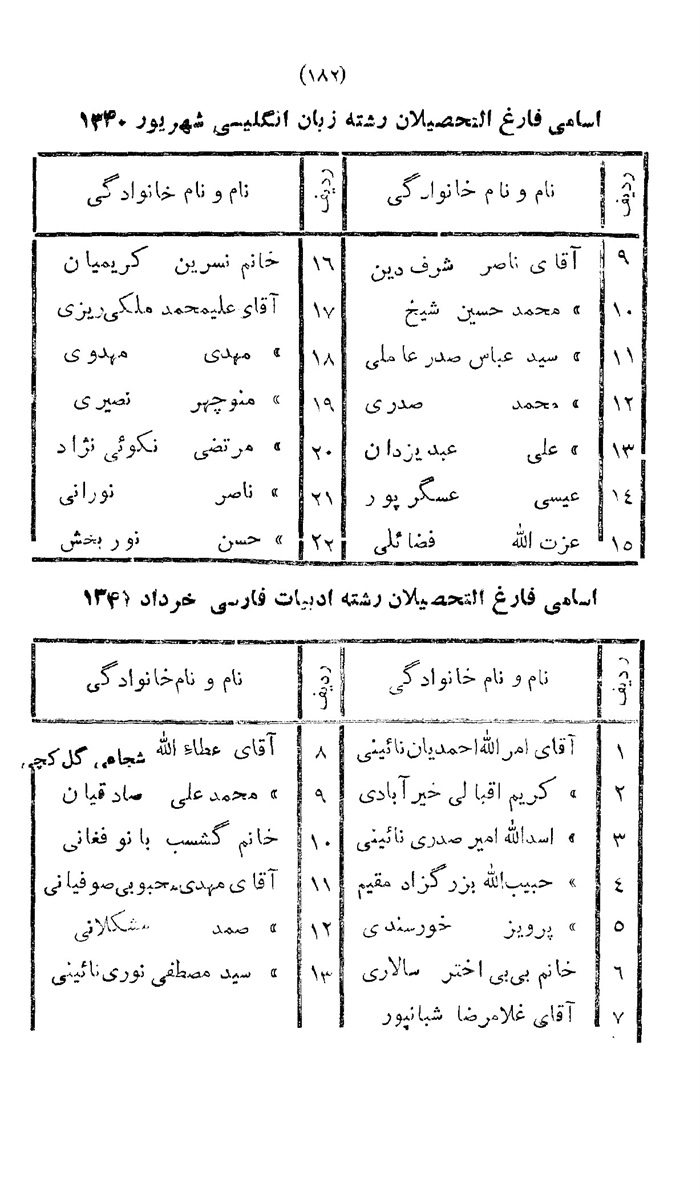 (۱۸۲)
اسامی فارغ التحصیلان رشته زبان انگلیسی شهریور ۱۳۴۰
ردیف نام و نام خانوادگی ردیف نام و نام خانوادگی
۹ آقای ناصر شرف دین ۱۶ خانم نسرین کریمیان
۱۰ » محمد حسین شیخ ۱۷ آقای علیمحمد ملکی‌ریزی
۱۱ » سید عباس صدر عاملی ۱۸ » مهدی مهدوی
۱۲ » محمد صدری ۱۹ » منوچهر نصیری
۱۳ » علی عبد یزدان ۲۰ » مرتضی نکوئی نژاد
۱٤ عیسی عسگر پور ۲۱ » ناصر نورانی
۱۵ عزت الله فضائلی ۲۲ » حسن نور بخش
اسامی فارغ التحصیلان رشته ادبیات فارسی خرداد ۱۳۴۱
ردیف نام و نام خانوادگی ردیف نام و نام خانوادگی
۱ آقای امرالله احمدیان نائینی ۸ آقای عطاء الله شجاعی گل کچی
۲ » کریم اقبالی خیرآبادی ۹ » محمد علی صادقیان
۳ » اسدالله امیر صدری نائینی ۱۰ خانم گشسب بانو فغانی
٤ » حبیب‌الله بزرگزاد مقیم ۱۱ آقای مهدی محبوبی صوفیانی
۵ » پرویز خورسندی ۱۲ » صمد مشکلانی
٦ خانم بی‌بی اختر سالاری ۱۳ » سید مصطفی نوری نائینی
۷ آقای غلامرضا شبانپور